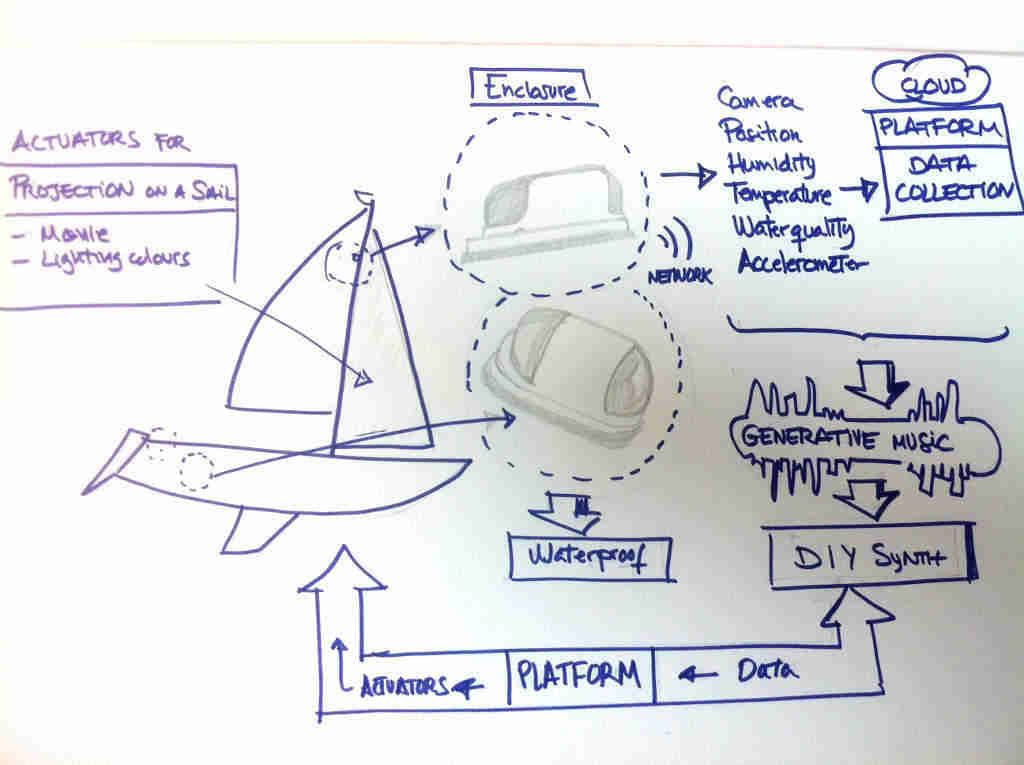 ACTUATORS FOR
PROJECTION ON A SAIL
- Movie
- Lighting colours
Enclosure
NETWORK
Waterproof
Camera
Position
Humidity
Temperature
Water quality
Accelerometer
CLOUD
PLATFORM
DATA
COLLECTION
GENERATIVE MUSIC
DIY SYNTH
ACTUATORS
PLATFORM
Data